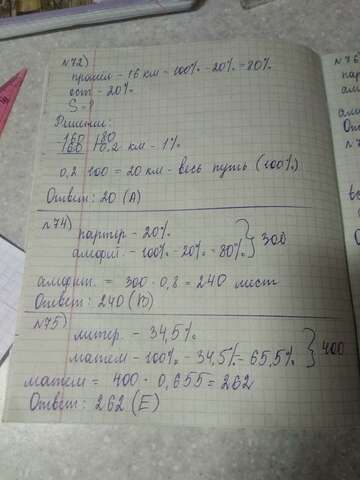 №72)
прошёл - 16 км - 100% - 20% = 80%
ост - 20%
S = ?
Решение:
160 | 80
160 | 0,2 км - 1%
0,2 · 100 = 20 км - весь путь (100%)
Ответ: 20 (А)
№74)
партер - 20%
амфит. - 100% - 20% = 80% } 300
амфит. = 300 · 0,8 = 240 мест
Ответ: 240 (В)
№75)
литер. - 34,5%
матем - 100% - 34,5% = 65,5% } 400
матем = 400 · 0,655 = 262
Ответ: 262 (Е)
№76
пар
отв
№